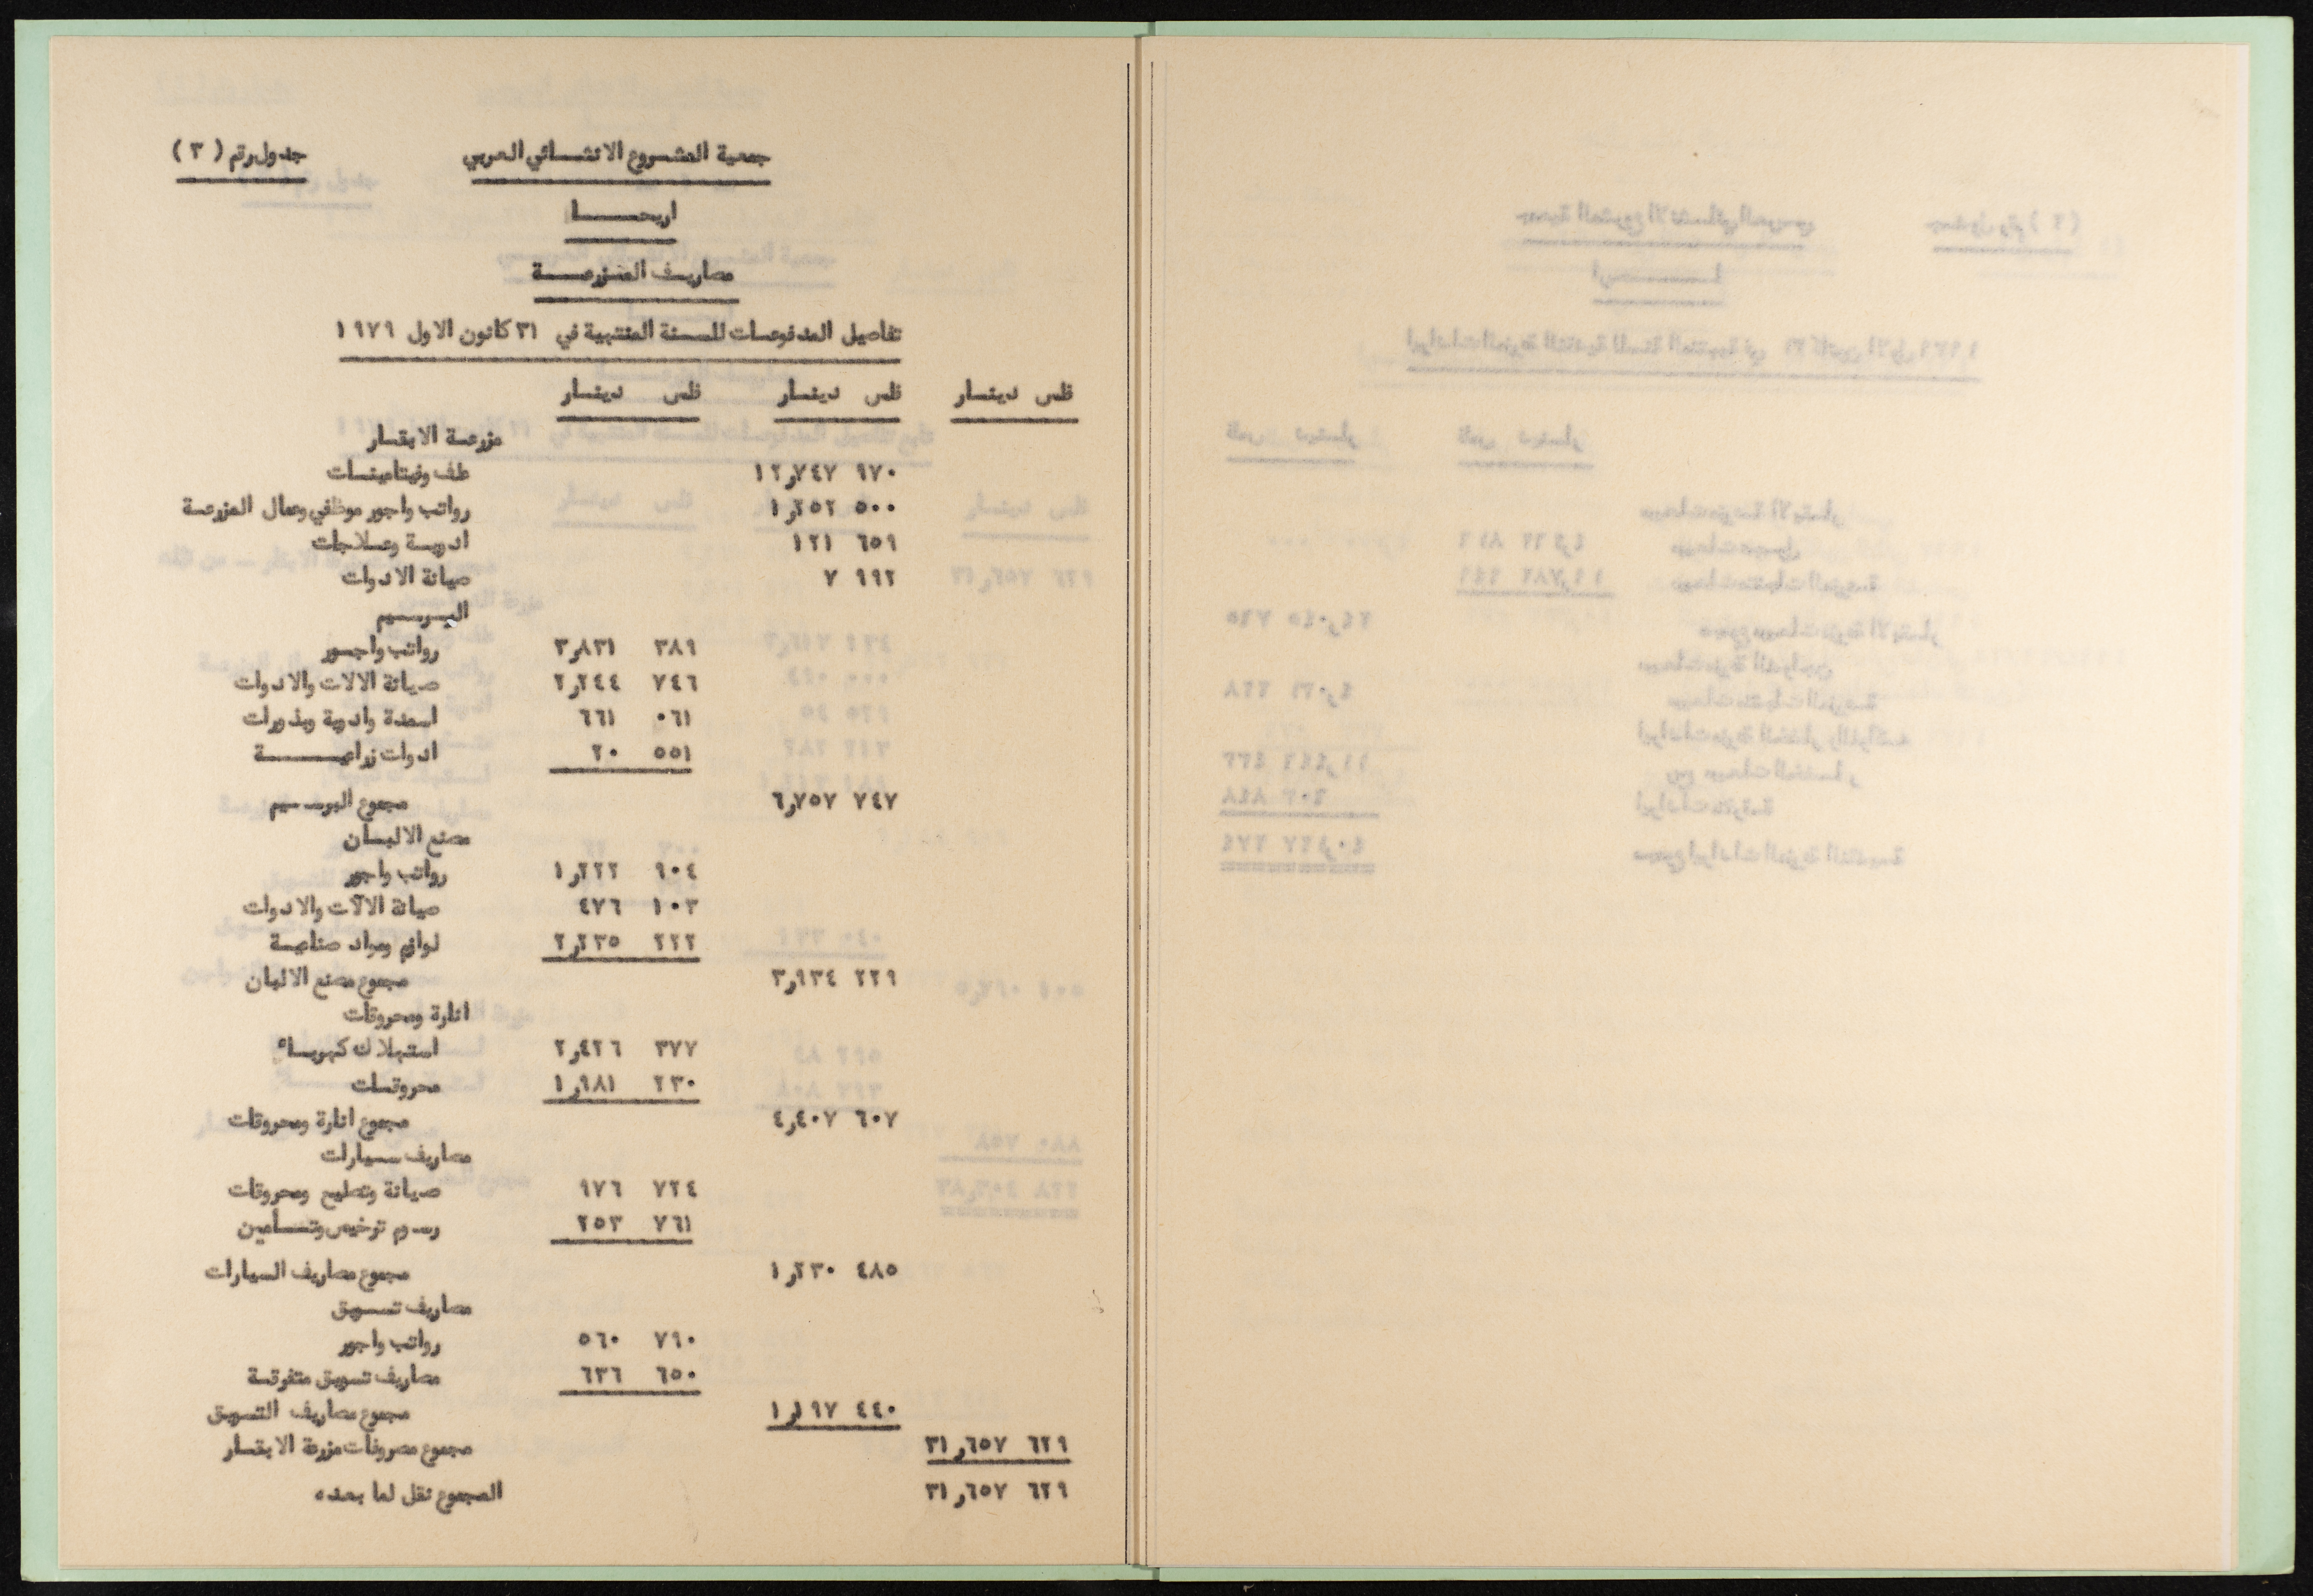 جدول رقم ( ٣ )
جمعية المشروع الانشائي العربي
اريحا
مصاريف المزرعة
تفاصيل المدفوعات للسنة المنتهية في ٣١ كانون الاول ١٩٧٩
فلس دينار فلس دينار فلس دينار
مزرعة الابقار
علف وفيتامينات ٩٧٠ ١٢٫٧٤٧
رواتب واجور موظفي وعمال المزرعة ٥٠٠ ١٫٢٥٢
ادوية وعلاجات ٦٥٩ ١٢١
صيانة الادوات ٩٩٢ ٧
البرسيم
رواتب واجور ٣٨٩ ٣٫٨٣١
صيانة الالات والادوات ٧٤٦ ٢٫٢٤٤
اسمدة وادوية وبذورات ٠٦١ ٦٦١
ادوات زراعية ٥٥١ ٢٠
مجموع البرسيم ٧٤٧ ٦٫٧٥٧
مصنع الالبان
رواتب واجور ٩٠٤ ١٫٢٢٢
صيانة الالآت والادوات ١٠٣ ٤٧٦
لوازم ومواد صناعية ٢٢٢ ٢٫٢٣٥
مجموع مصنع الالبان ٢٢٩ ٣٫٩٣٤
انارة ومحروقات
استهلاك كهرباء ٣٧٧ ٢٫٤٢٦
محروقات ٢٣٠ ١٫٩٨١
مجموع انارة ومحروقات ٦٠٧ ٤٫٤٠٧
مصاريف سيارات
صيانة وتصليح ومحروقات ٧٢٤ ٩٧٦
رسوم ترخيص وتأمين ٧٦١ ٢٥٣
مجموع مصاريف السيارات ٤٨٥ ١٫٢٣٠
مصاريف تسويق
رواتب واجور ٧٩٠ ٥٦٠
مصاريف تسويق متفرقة ٦٥٠ ٦٣٦
مجموع مصاريف التسويق ٤٤٠ ١٫١٩٧
مجموع مصروفات مزرعة الابقار ٦٢٩ ٣١٫٦٥٧
المجموع نقل لما بعده ٦٢٩ ٣١٫٦٥٧